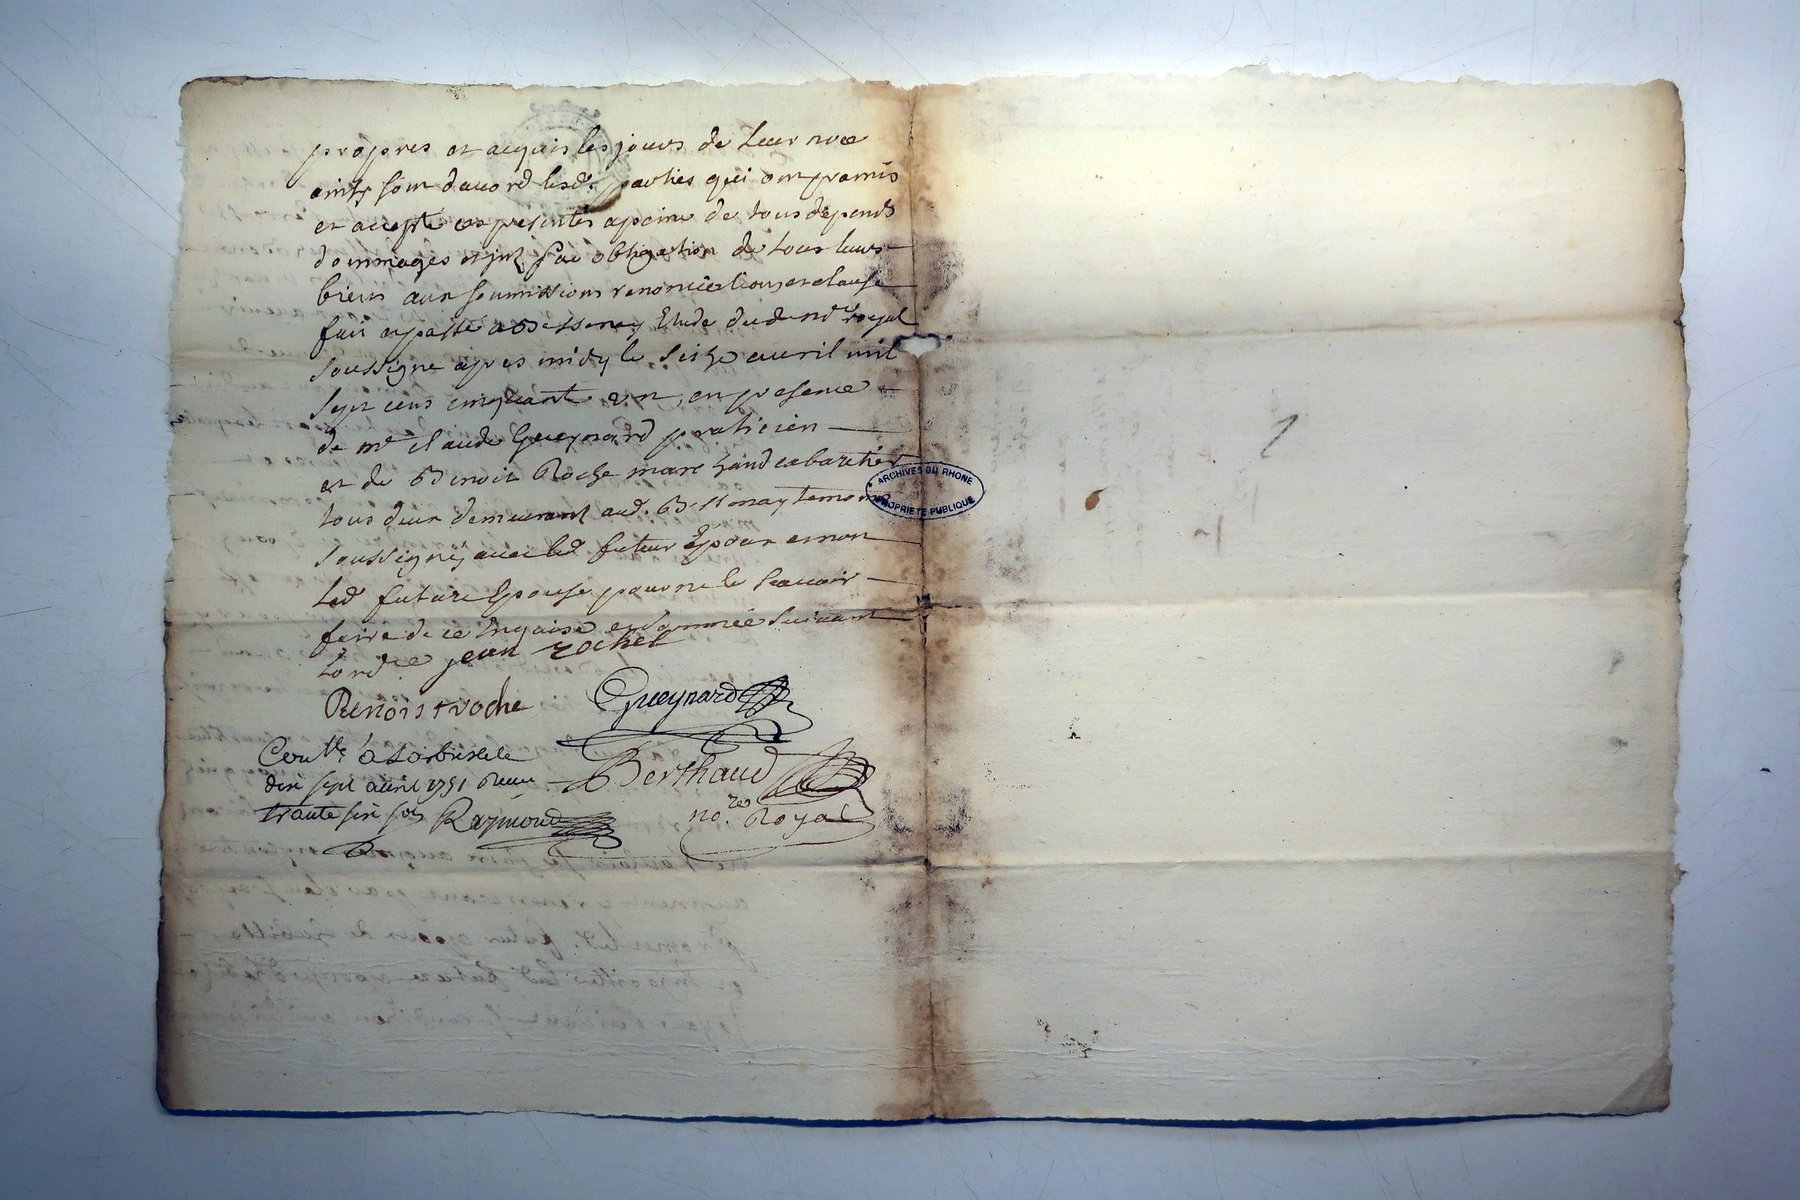 propres et acquis les jours de leur noce
ainsy sont daccord lesd. parties qui ont promis
et accepté ces presentes a peine de tous depends
dommages et par obligation de tous leurs
biens aux soumissions renonciations et clause
fait et passé a Bessenay Etude dud. no.re royal
soussigné apres midy le seize avril mil
sept cens cinquant un, en presence
de me Claude Gueynard praticien
et de Benoit Roche marchand cabaretier
tous deux demeurant aud. Bessenay temoins
soussignés avec led futur Epoux et non
lad future Epouse pour ne le scavoir
faire de ce Enquise et sommée suivant
lord.ce jean rochet
Benoist roche Gueynard
Con.lle a Larbresle
dix sept avril 1751 Reçu Berthaud
trante six sols Raymond no.re Royal
ARCHIVES DU RHONE
PROPRIETE PUBLIQUE